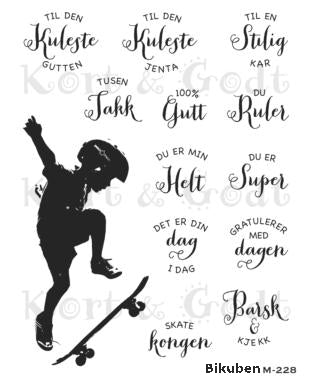 TIL DEN
Kuleste
GUTTEN
TIL DEN
Kuleste
JENTA
TIL EN
Stilig
KAR
TUSEN
Takk
100%
Gutt
DU
Ruler
DU ER MIN
Helt
DU ER
Super
DET ER DIN
dag
I DAG
GRATULERER
MED
dagen
SKATE
kongen
Barsk
& KJEKK
Kort & Godt
Kort & Godt
Kort & Godt
Bikuben M-228